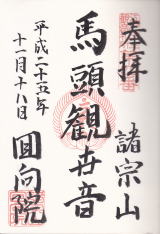 奉拝
諸宗山
馬頭観世音
平成二十五年
十一月十八日
回向院